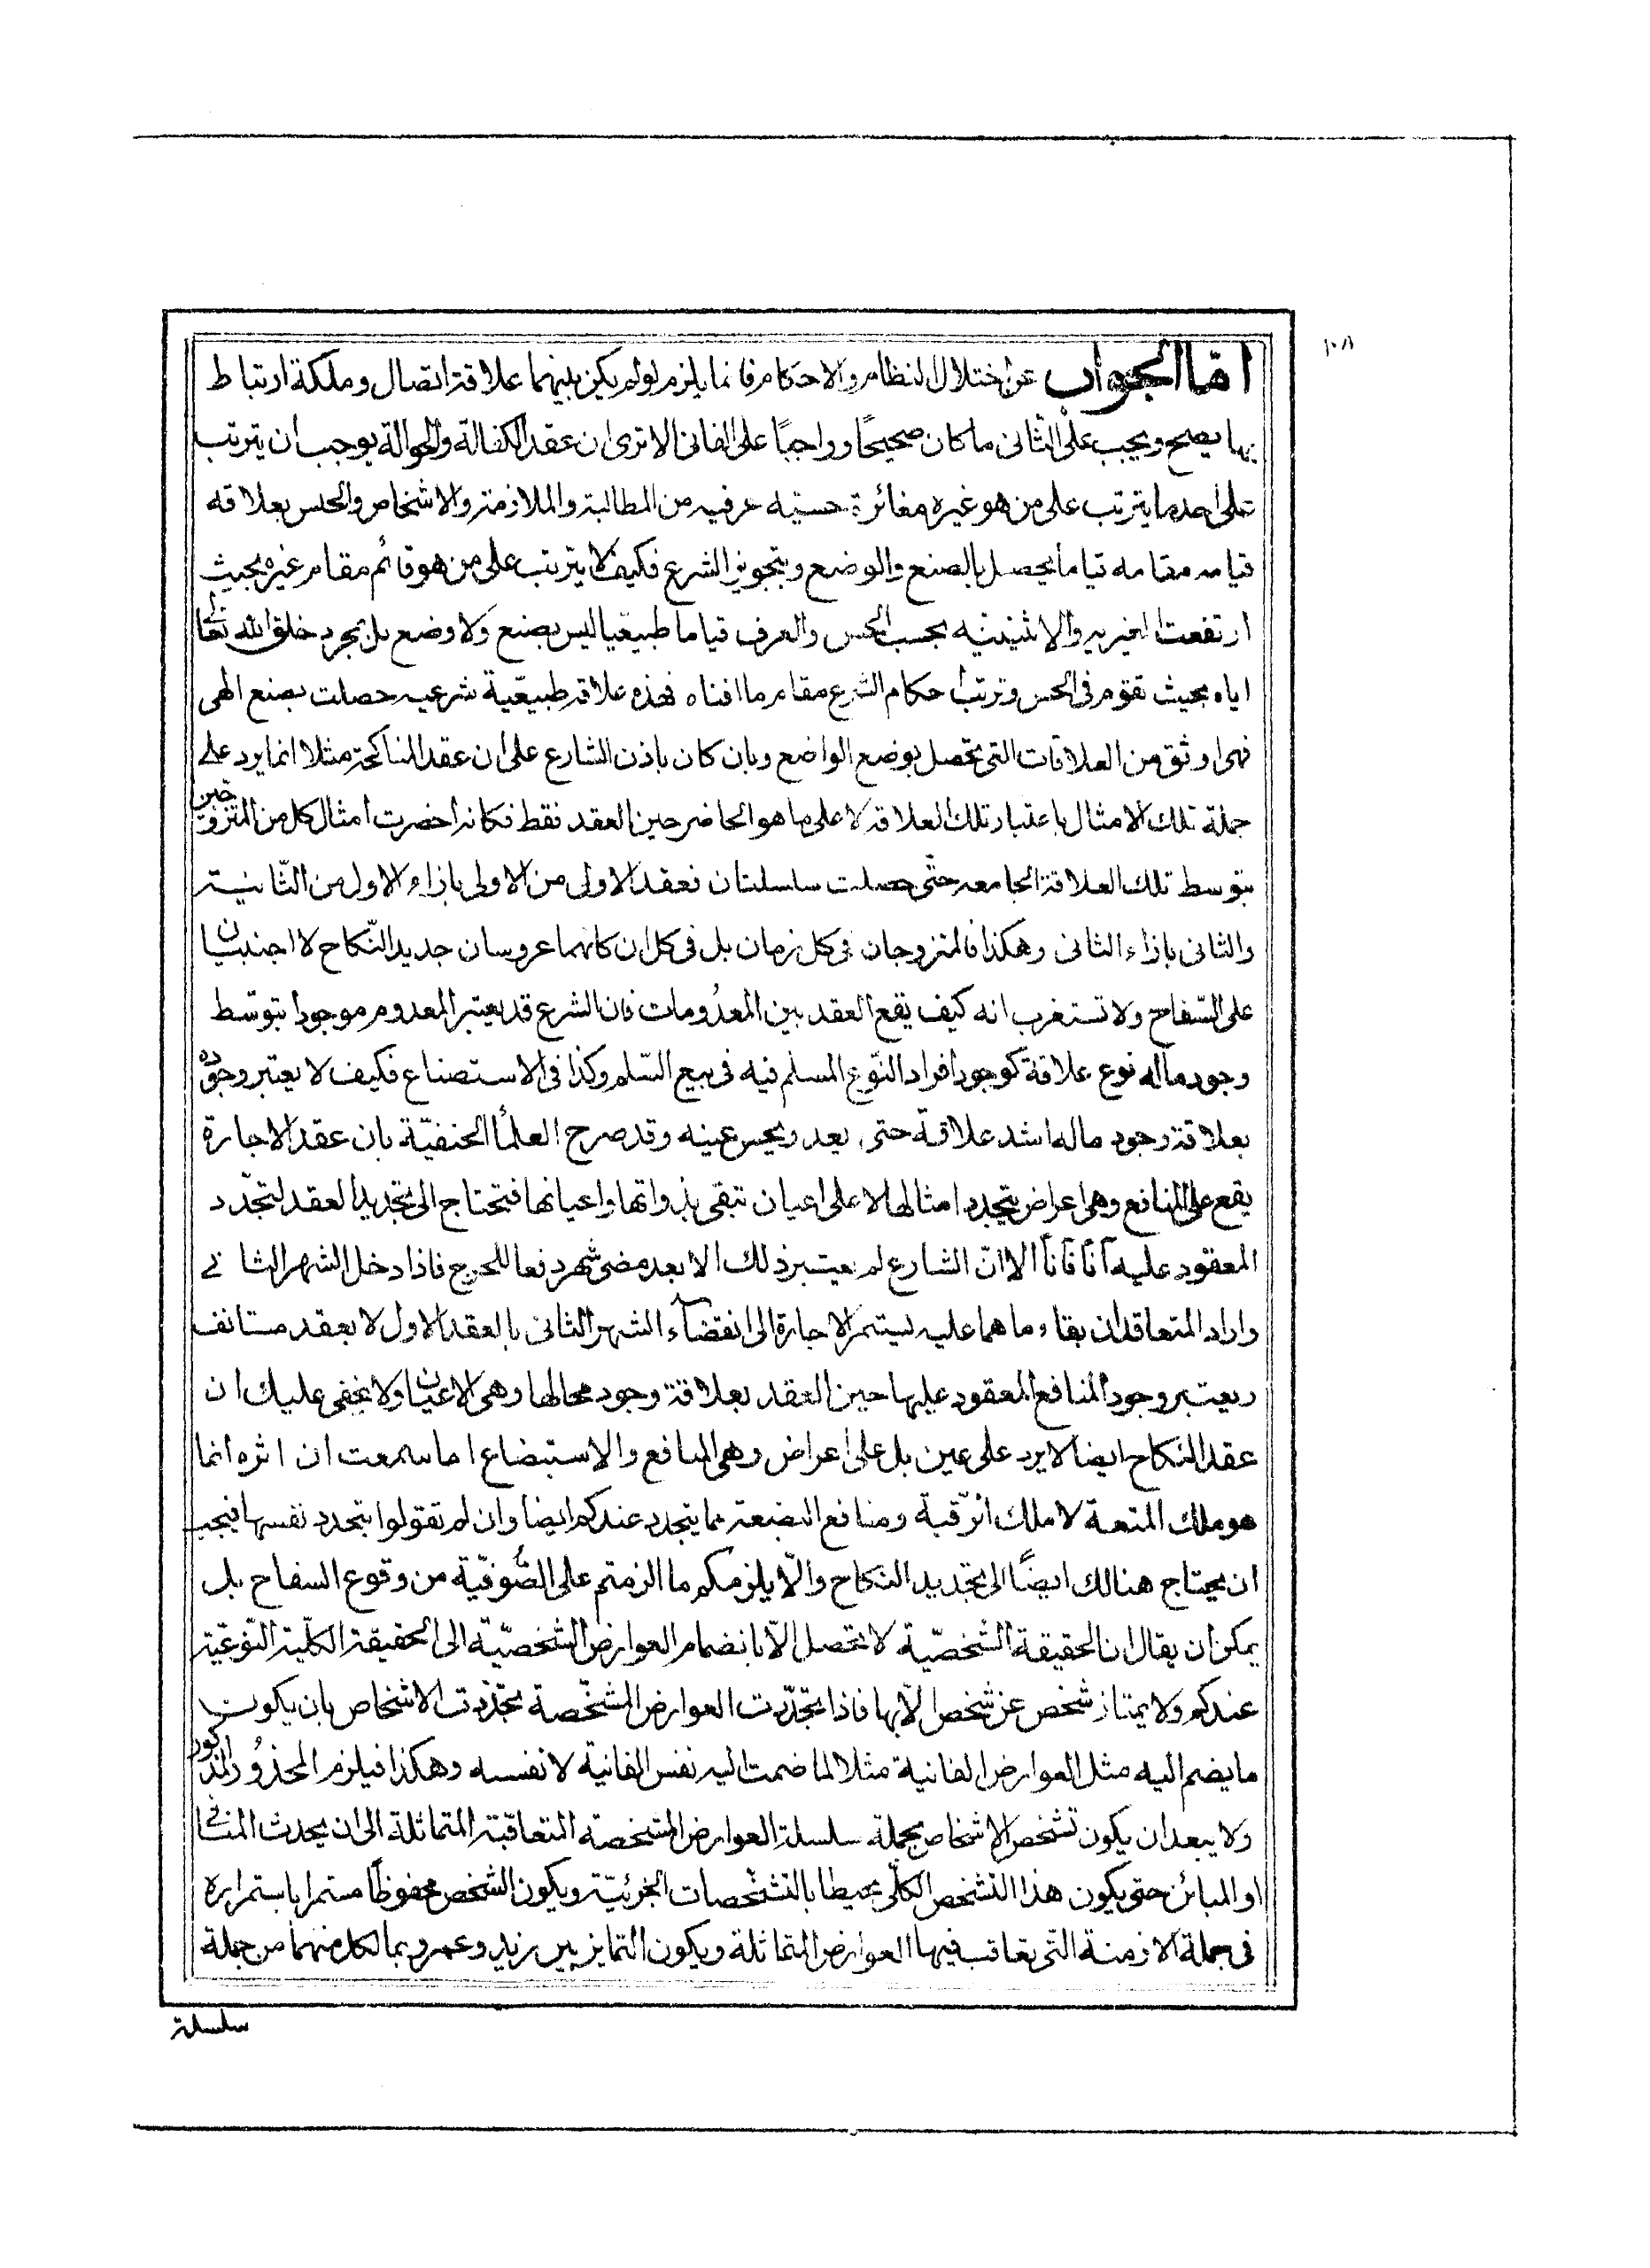 ١٠٨
اما الجواب عن اختلال النظام والاحكام فانما يلزم لو لم يكن بينهما علاقة اتصال وملكة ارتباط
بها يصح ويجب على الثانى ما كان صحيحًا وواجبًا على الفانى الا ترى ان عقد الكفالة والحوالة يوجب ان يترتب
على احد ما يترتب على من هو غيره مغائرة حسيه عرفيه من المطالبة والملازمة والاشخاص والحبس بعلاقه
قيامه مقامه قياما يحصل بالصنع والوضع وبتجويز الشرع فكيف لا يترتب على من هو قائم مقام غيره بحيث
ارتفعت الغيريه والاثنينيه بحسب الحس والعرف قياما طبيعيا ليس بصنع ولا وضع بل بمجرد خلق الله تعالى
اياه بحيث تقوم فى الحس وترتب احكام الشرع مقام ما افناه فهذه علاقه طبيعية شرعيه حصلت بصنع الهى
فهى اوثق من العلاقات التى تحصل بوضع الواضع وبان كان باذن الشارع على ان عقد المناكحة مثلا انما يرد على
جملة تلك الامثال باعتبار تلك العلاقة لا على ما هو الحاضر حين العقد فقط فكانه احضرت امثال كل من المتزوجين
بتوسط تلك العلاقة الجامعه حتى حصلت سلسلتان فعقد الاولى من الاولى بازاء الاول من الثانية
والثانى بازاء الثانى وهكذا فالمتزوجان فى كل زمان بل فى كل ان كانهما عروسان جديد النكاح لا اجنبيان
على السفاح ولا تستغرب انه كيف يقع العقد بين المعدومات فان الشرع قد يعتبر المعدوم موجودا بتوسط
وجود ماله نوع علاقة كوجود افراد النوع المسلم فيه فى بيع السلم وكذا فى الاستصناع فكيف لا يعتبر وجوده
بعلاقة وجود ماله اشد علاقة حتى يعد ويحس عينه وقد صرح العلمأ الحنفية بان عقد الاجارة
يقع على المنافع وهى اعراض يتجدد امثالها لا على اعيان تبقى بذواتها واعيانها فتحتاج الى تجديد العقد لتجدد
المعقود عليه آنًا فآنًا الا ان الشارع لم يعتبر ذلك الا بعد مضى شهر دفعا للحرج فاذا دخل الشهر الثانى
واراد المتعاقدان بقاء ما هما عليه ليستمر الاجارة الى انقضاء الشهر الثانى بالعقد الاول لا بعقد مستانف
ويعتبر وجود المنافع المعقود عليها حين العقد بعلاقة وجود محالها وهى الاعيان ولا يخفى عليك ان
عقد النكاح ايضا لا يرد على عين بل على اعراض وهى المنافع والاستبضاع اما سمعت ان اثره انما
هو ملك المتعة لا ملك الرقبة ومنافع البضعة مما يتجدد عندكم ايضا وان لم تقولوا بتجدد نفسها فيجب
ان يحتاج هنالك ايضًا الى تجديد النكاح والّا يلزمكم ما الزمتم على الصوفية من وقوع السفاح بل
يمكن ان يقال ان الحقيقة الشخصية لا تحصل الّا بانضمام العوارض الشخصية الى الحقيقة الكلية النوعية
عندكم ولا يمتاز شخص عن شخص الّا بها فاذا تجددت العوارض المشخصة تجددت الاشخاص بان يكون
ما يضم اليه مثل العوارض الفانية مثلا لما ضمت اليه نفس الفانية لا نفسه وهكذا فيلزم المحذور المذكور
ولا يبعد ان يكون تشخص الاشخاص بجملة سلسلة العوارض المشخصة المتعاقبة المتماثلة الى ان يحدث المنافى
او المبائن حتى يكون هذا التشخص الكلى محيطا بالتشخصات الجزئية ويكون الشخص محفوظًا مستمرا باستمراره
فى جملة الازمنة التى تعاقب فيها العوارض المتماثلة ويكون التمايز بين زيد وعمرو بما لكل منهما من جملة
سلسلة